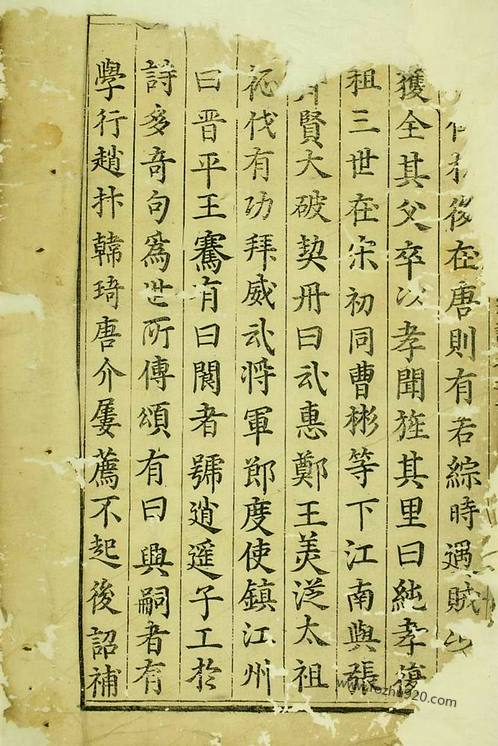 後在唐則有若綜時遇賊以
獲全其父卒以孝聞旌其里曰純孝復
祖三世在宋初同曹彬等下江南與張
齊賢大破契丹曰武惠鄭王美從太祖
征伐有功拜威武將軍節度使鎮江州
曰晉平王騫有曰閱者號逍遥子工於
詩多奇句為世所傳頌有曰興嗣者有
學行趙抃韓琦唐介屢薦不起後詔補
www.fozhu920.com